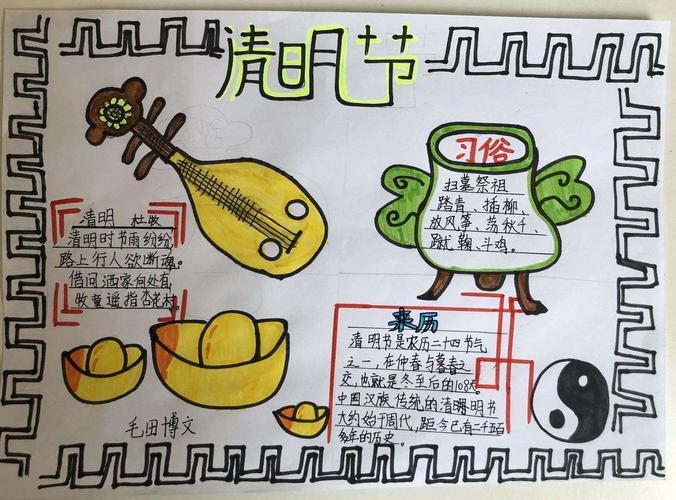 清明节
清明 杜牧
清明时节雨纷纷,
路上行人欲断魂。
借问洒家何处有,
牧童遥指杏花村。
习俗
扫墓祭祖
踏青、插柳、
放风筝、荡秋千、
蹴鞠、斗鸡。
来历
清明节是农历二十四节气
之一,在仲春与暮春之
交,也就是冬至后的108天。
中国汉族传统的清明节
大约始于周代,距今已有二千五百
多年的历史。
毛田博文